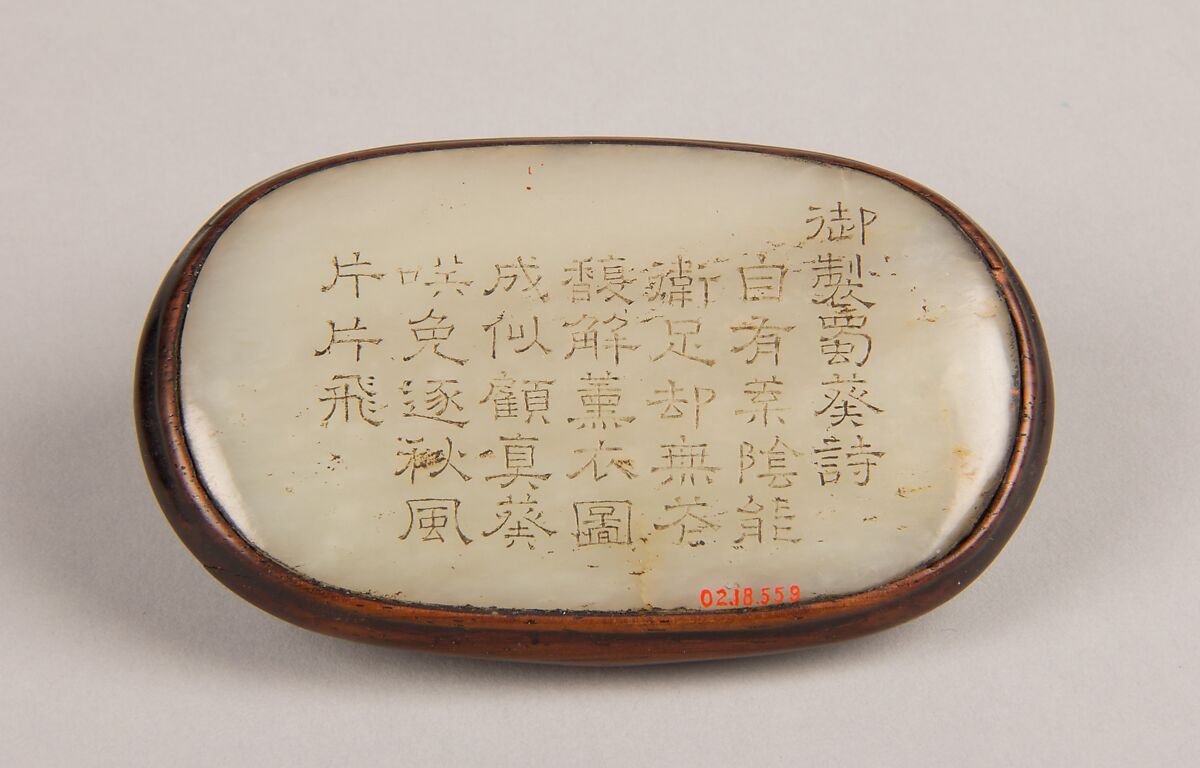 御製蜀葵詩
自有葉陰能
衛足却無芬
馥解薰衣圖
成似顧真葵
咲免逐秋風
片片飛
02.18.559